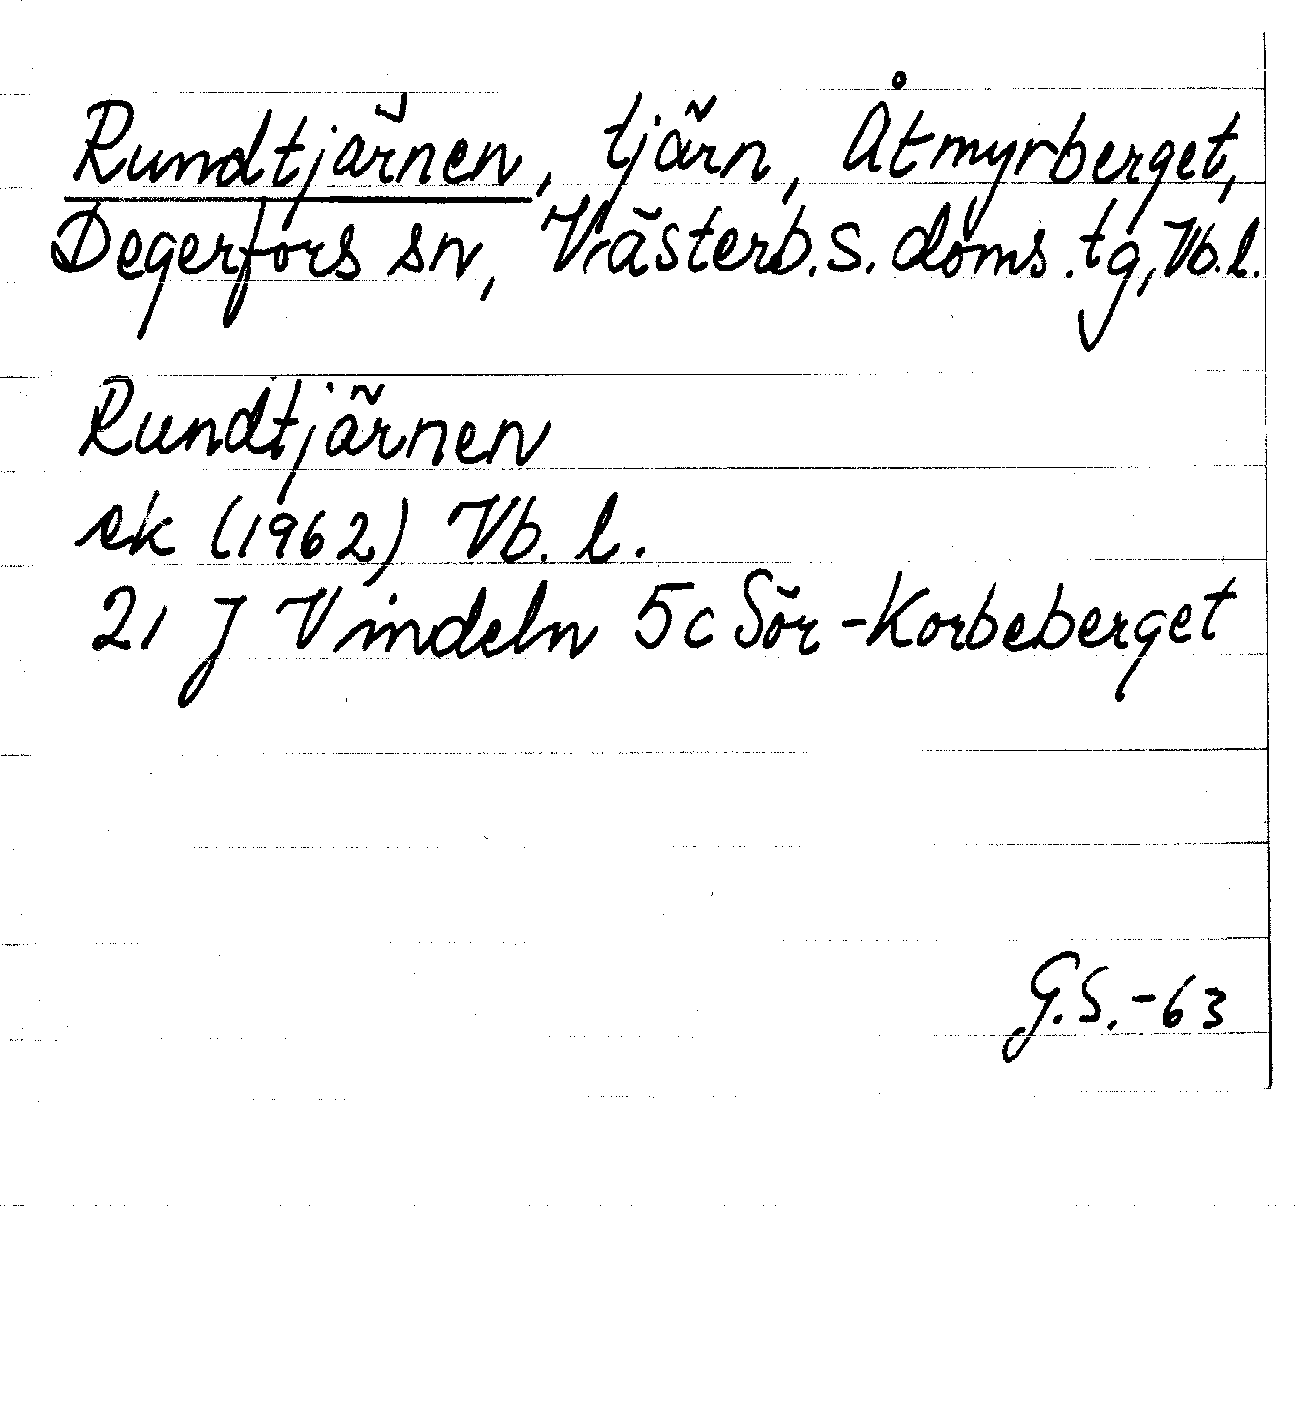 Rundtjärnen, tjärn, Åtmyrberget,
Degerfors sn, Västerb. s. doms.tg, Vb. l.
Rundtjärnen
ek (1962) Vb. l.
21 J Vindeln 5c Sör-Korbeberget
G.S.-63